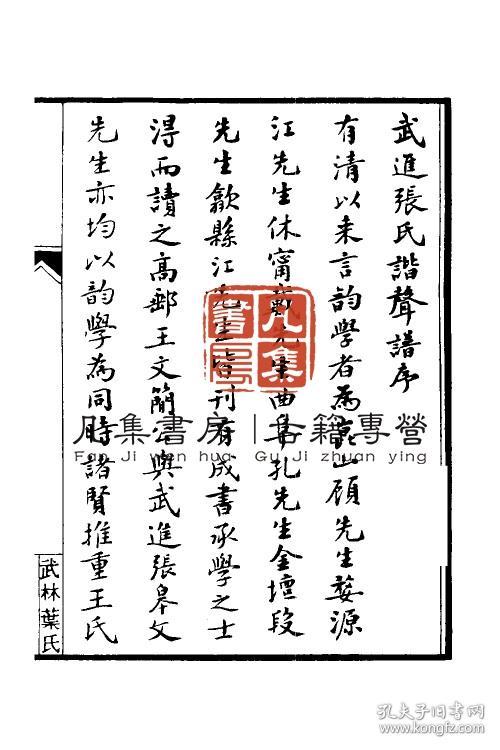 武進張氏諧聲譜序
有清以来言韵學者為崑山顧先生婺源
江先生休甯戴先生曲阜孔先生金壇段
先生歙縣江先生皆刊有成書承學之士
淂而讀之高郵王文簡公與武進張皋文
先生亦均以韵學為同時諸賢推重王氏
武林葉氏
凡集書房
凡集書房|古籍專營
Fan Ji yen hua Gu Ji zhuan ying
孔夫子旧书网
www.kongfz.com